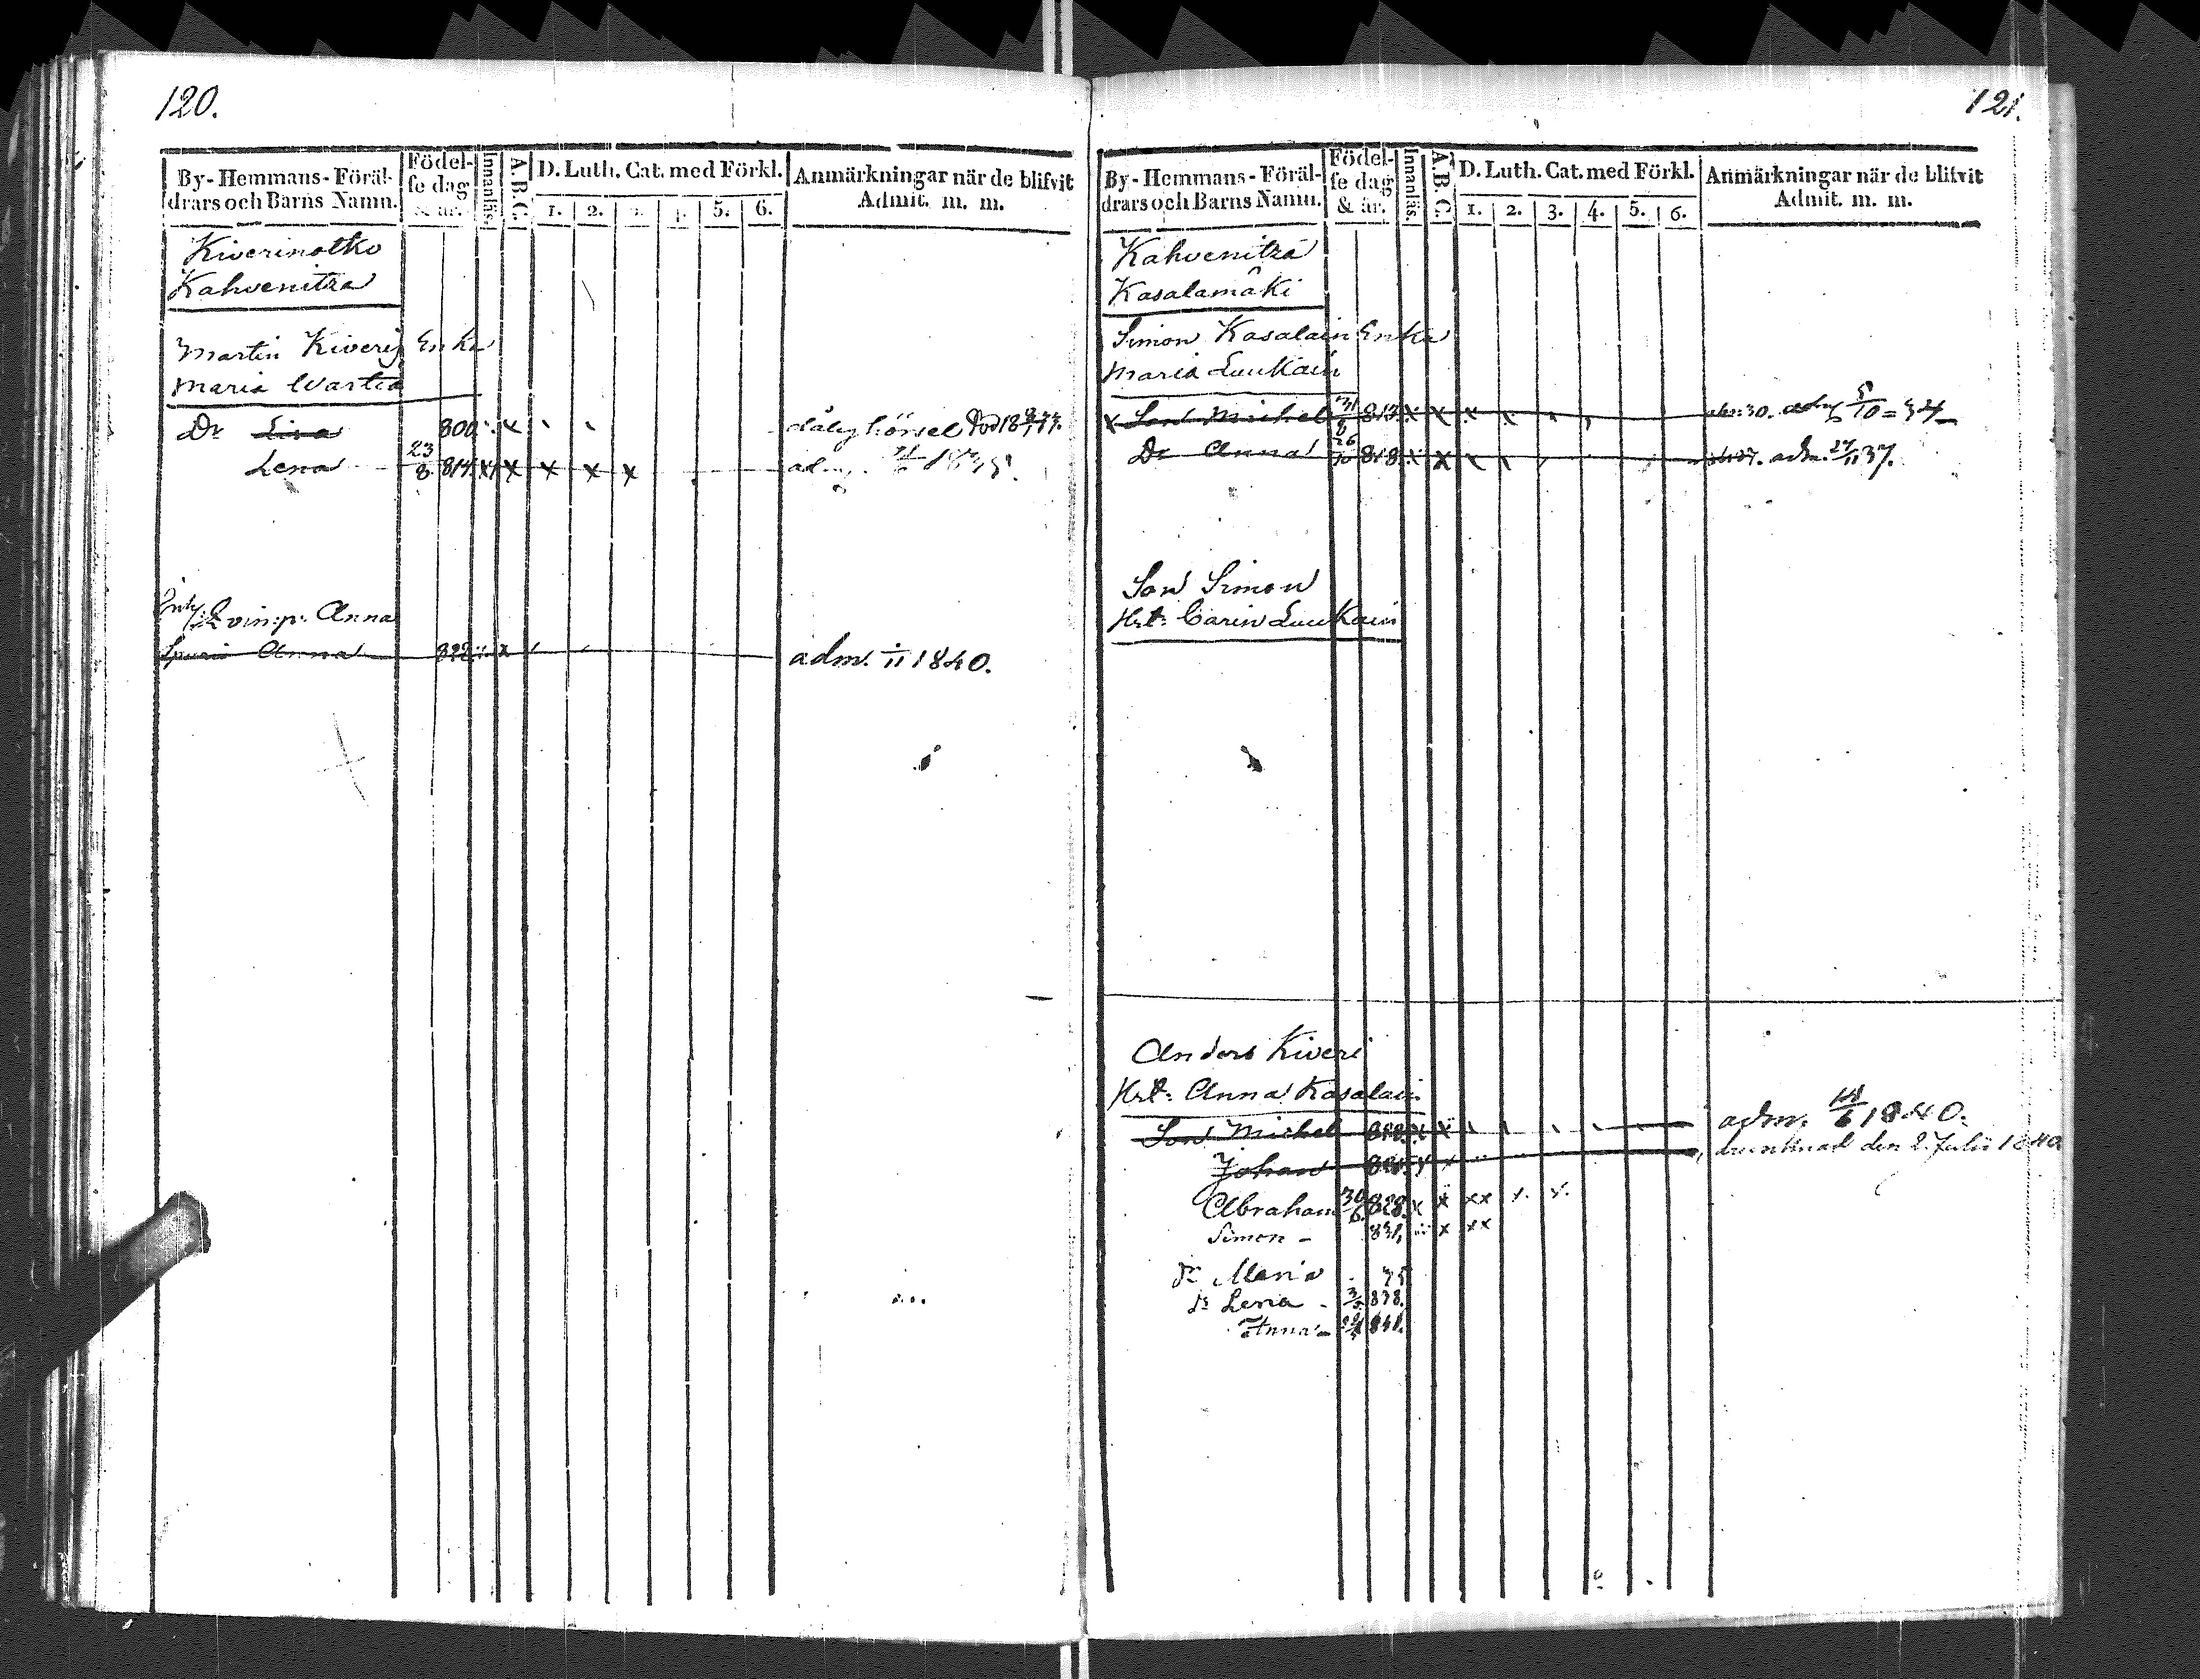 120.
By- Hemmans- Föräl-
drars och Barns Namn.
Födel-
se dag
& år.
Innanläs.
A. B. C.
D. Luth. Cat. med Förkl.
1. 2. 3. 4. 5. 6.
Anmärkningar när de blifvit
Admit. m. m.
Kiverinotko
Kahvenitza
Martin Kiverij Enka
Maria Wartia
Dr Lisa 800. x dålig hörsel
Lena 23/8 814. x x x x x
Anna
Anna x adm. 1840.
121.
By- Hemmans- Föräl-
drars och Barns Namn.
Födel-
se dag
& år.
Innanläs.
A. B. C.
D. Luth. Cat. med Förkl.
1. 2. 3. 4. 5. 6.
Anmärkningar när de blifvit
Admit. m. m.
Kahvenitza
Kasalamäki
Simon Kasalain Enka
Maria Luukain
x Son Michel 31/8 813. x x x
Dr Anna 26/10 818. x 37.
Son Simon
Hst: Carin Luukain
Anders Kiveri
Hst: Anna Kasalain
Son Michel adm. 14/6 1840.
Johan den 2 Julii 1840
Abraham 30/6 828. x x xx x. x.
Simon - 831. x xx
dr Maria 35
dr Lena - 838.
Anna - 841.